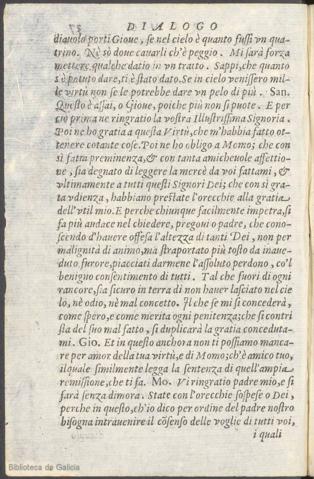 DIALOGO
diauolo porti Gioue, se nel cielo è quanto fussi vn qua-
trino. Nè sò doue cauarli ch'è peggio. Mi sarà forza
mettere qualche datio in vn tratto. Sappi, che quanto
s'è potuto dare, ti è stato dato. Se in cielo venissero mil-
le virtù non se le potrebbe dare vn pelo di più. San.
Questo è assai, o Gioue, poiche più non si puote. E per
ciò prima ne ringratio la vostra Illustrissima Signoria.
Poi ne ho gratia a questa Virtù, che m'habbia fatto ot-
tenere cotante cose. Poi ne ho obligo a Momo; che con
sì fatta preminenza, & con tanta amicheuole affettio-
ne, sia degnato di leggere la mercè da voi fattami, &
vltimamente a tutti questi Signori Dei; che con sì gra-
ta vdienza, habbiano prestate l'orecchie alla gratia
dell'vtil mio. E perche chiunque facilmente impetra, si
fa più audace nel chiedere, pregoui o padre, che cono-
scendo d'hauere offesa l'altezza di tanti Dei, non per
malignità di animo, ma straportato più tosto da inaue-
duto furore, piacciati darmene l'assoluto perdono, co'l
benigno consentimento di tutti. Tal che fuori di ogni
rancore, sia sicuro in terra di non hauer lasciato nel cie
lo, nè odio, nè mal concetto. Il che se mi si concederà,
come spero, e come merita ogni penitenza; che si contri
sta del suo mal fatto, si duplicarà la gratia conceduta-
mi. Gio. Et in questo anchora non ti possiamo manca-
re per amor della tua virtù, e di Momo; ch'è amico tuo,
il quale similmente legga la sentenza di quell'ampia
remissione, che ti fa. Mo. Vi ringratio padre mio, e si
farà senza dimora. State con l'orecchie sospese o Dei,
perche in questo, ch'io dico per ordine del padre nostro
bisogna intrauenire il cōsenso delle voglie di tutti voi,
i quali
Biblioteca de Galicia